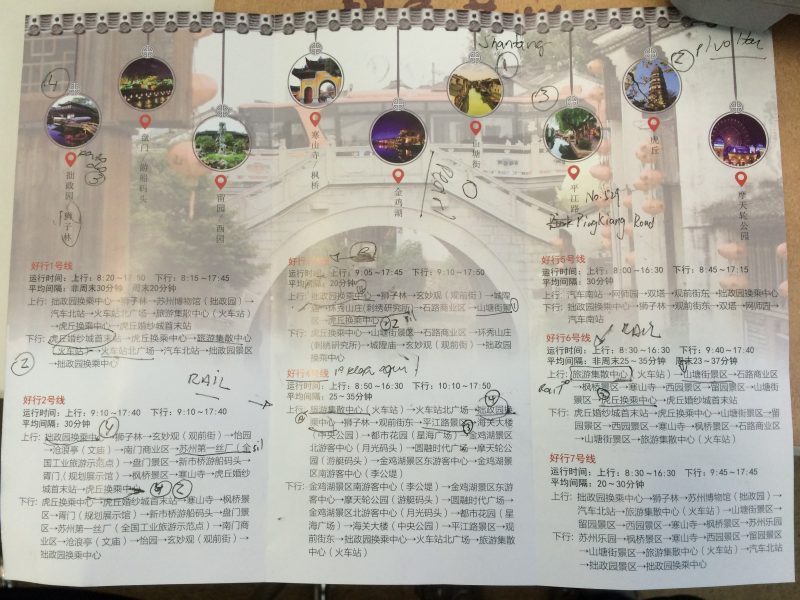 Shantang
①
② 
③
④
拙政园 狮子林
盘门 游船码头
留园 西园
寒山寺 枫桥
金鸡湖
山塘街
平江路
虎丘
摩天轮公园
No. 529
PingKiang Road
好行1号线
运行时间：上行：8:20~17:50 下行：8:15~17:45
平均间隔：非周末30分钟 周末20分钟
上行：拙政园换乘中心→狮子林→苏州博物馆（拙政园）→
汽车北站→火车北广场→旅游集散中心（火车站）
→虎丘换乘中心→虎丘婚纱城首末站
下行：虎丘婚纱城首末站→虎丘换乘中心→旅游集散中心
（火车站）→火车站北广场→汽车北站→拙政园景区
→拙政园换乘中心
②
RAIL
好行2号线
运行时间：上行：9:10~17:40 下行：9:10~17:40
平均间隔：30分钟
上行：拙政园换乘中心→狮子林→玄妙观（观前街）→怡园
→沧浪亭（文庙）→南门商业区→苏州第一丝厂（全
国工业旅游示范点）→盘门景区→新市桥游船码头→
胥门（规划展示馆）→枫桥景区→寒山寺→虎丘婚纱
城首末站→虎丘换乘中心
下行：虎丘换乘中心→虎丘婚纱城首末站→寒山寺→枫桥景
区→胥门（规划展示馆）→新市桥游船码头→盘门景
区→苏州第一丝厂（全国工业旅游示范点）→南门商
业区→沧浪亭（文庙）→怡园→玄妙观（观前街）→
拙政园换乘中心
运行时间：上行：9:05~17:45 下行：9:10~17:50
平均间隔：20分钟
上行：拙政园换乘中心→狮子林→玄妙观（观前街）→城隍
庙→环秀山庄(刺绣研究所)→石路商业区→山塘街景
区→虎丘换乘中心
下行：虎丘换乘中心→山塘街景区→石路商业区→环秀山庄
(刺绣研究所)→城隍庙→玄妙观（观前街）→拙政
园换乘中心
好行4号线
运行时间：上行：8:50~16:30 下行：10:10~17:50
平均间隔：25~35分钟
上行：旅游集散中心（火车站）→火车站北广场→拙政园换
乘中心→狮子林→观前街东→平江路景区→海关大楼
（中央公园）→都市花园（星海广场）→金鸡湖景区
北游客中心（月光码头）→圆融时代广场→摩天轮公
园（游艇码头）→金鸡湖景区东游客中心→金鸡湖景
区南游客中心（李公堤）
下行：金鸡湖景区南游客中心（李公堤）→金鸡湖景区东游
客中心→摩天轮公园（游艇码头）→圆融时代广场→
金鸡湖景区北游客中心（月光码头）→都市花园（星
海广场）→海关大楼（中央公园）→平江路景区→观
前街东→拙政园换乘中心→火车站北广场→旅游集散
中心（火车站）
好行5号线
运行时间：上行：8:00~16:30 下行：8:45~17:15
平均间隔：30分钟
上行：汽车南站→网师园→双塔→观前街东→拙政园换乘中心
下行：拙政园换乘中心→观前街东→双塔→网师园→
汽车南站
RAIL
好行6号线
运行时间：上行：8:30~16:30 下行：9:40~17:40
平均间隔：非周末25~35分钟 周末23~37分钟
上行：旅游集散中心（火车站）→山塘街景区→石路商业区
→枫桥景区→寒山寺→西园景区→留园景区→山塘街
景区→虎丘换乘中心→虎丘婚纱城首末站
下行：虎丘婚纱城首末站→虎丘换乘中心→山塘街景区→留
园景区→西园景区→寒山寺→枫桥景区→石路商业区
→山塘街景区→旅游集散中心（火车站）
好行7号线
运行时间：上行：8:30~16:30 下行：9:45~17:45
平均间隔：20~30分钟
上行：拙政园换乘中心→狮子林→苏州博物馆（拙政园）→
汽车北站→旅游集散中心（火车站）→山塘街景区→
留园景区→西园景区→寒山寺→枫桥景区→苏州乐园
下行：苏州乐园→枫桥景区→寒山寺→西园景区→留园景区
→山塘街景区→旅游集散中心（火车站）→汽车北站
→拙政园景区→拙政园换乘中心